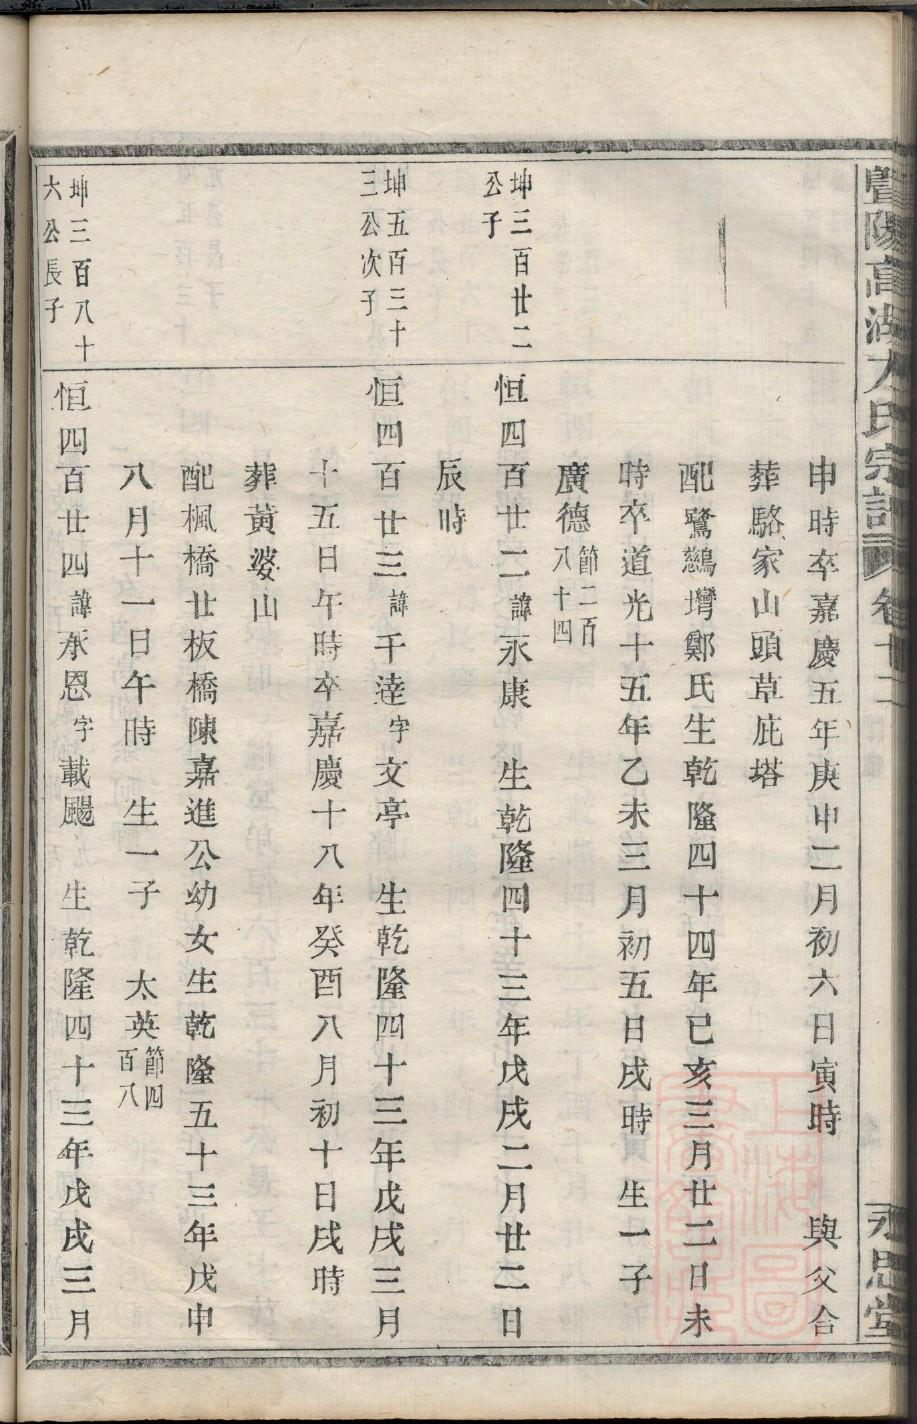 暨陽高湖方氏宗譜 卷十二 永思堂
申時卒嘉慶五年庚申二月初六日寅時 與父合
葬駱家山頭草庇塔
配鷺鷀壪鄭氏生乾隆四十四年已亥三月廿二日未
時卒道光十五年乙未三月初五日戌時 生一子
廣德節二百八十四
坤三百廿二公子
恒四百廿二諱永康 生乾隆四十三年戊戌二月廿二日
辰時
坤五百三十三公次子
恒四百廿三諱千逵字文亭 生乾隆四十三年戊戌三月
十五日午時卒嘉慶十八年癸酉八月初十日戌時
葬黃婆山
配楓橋廿板橋陳嘉進公幼女生乾隆五十三年戊申
八月十一日午時 生一子 太英節四百八
坤三百八十六公長子
恒四百廿四諱承恩字載颺 生乾隆四十三年戊戌三月